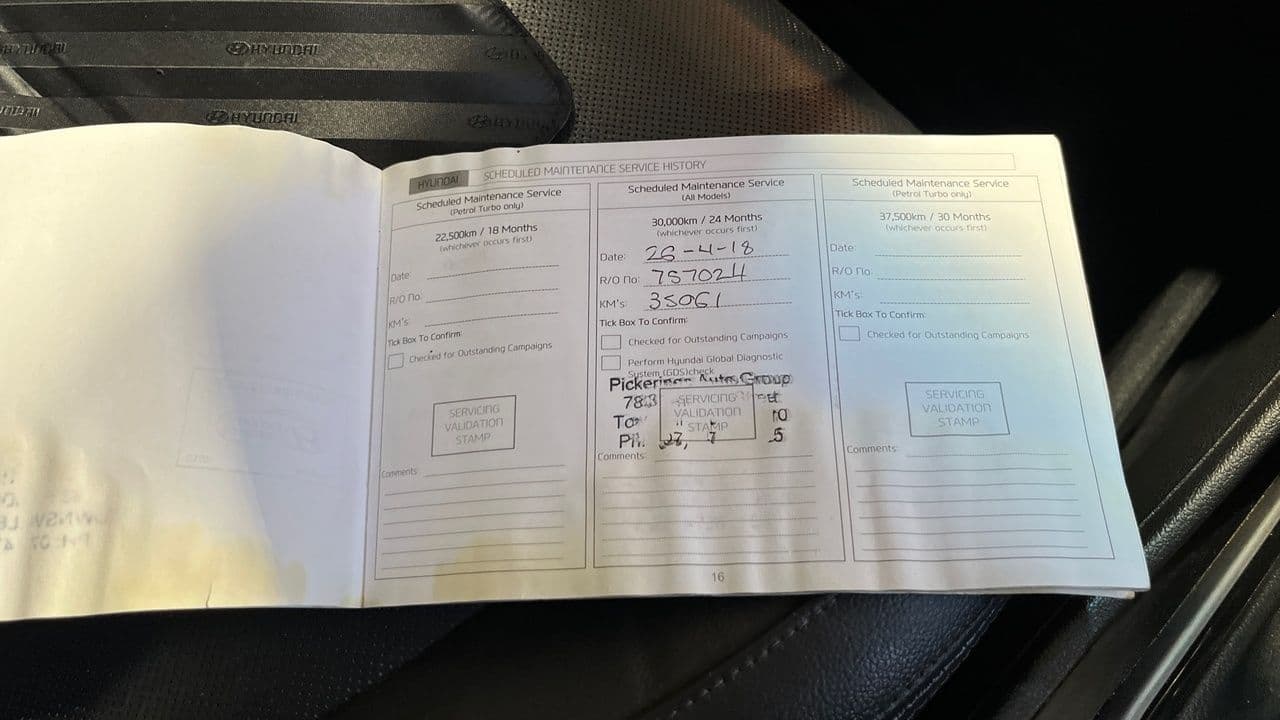 HYUNDAI
HYUNDAI
HYUNDAI SCHEDULED MAINTENANCE SERVICE HISTORY
Scheduled Maintenance Service
(Petrol Turbo only)
22,500km / 18 Months
(whichever occurs first)
Date:
R/O No:
KM's:
Tick Box To Confirm:
Checked for Outstanding Campaigns
SERVICING
VALIDATION
STAMP
Comments:
Scheduled Maintenance Service
(All Models)
30,000km / 24 Months
(whichever occurs first)
Date: 26-4-18
R/O No: 757024
KM's: 35061
Tick Box To Confirm:
Checked for Outstanding Campaigns
Perform Hyundai Global Diagnostic
System (GDS)check
Pickering Auto Group
SERVICING
VALIDATION
STAMP
Ph.
Comments:
Scheduled Maintenance Service
(Petrol Turbo only)
37,500km / 30 Months
(whichever occurs first)
Date:
R/O No:
KM's:
Tick Box To Confirm:
Checked for Outstanding Campaigns
SERVICING
VALIDATION
STAMP
Comments:
16